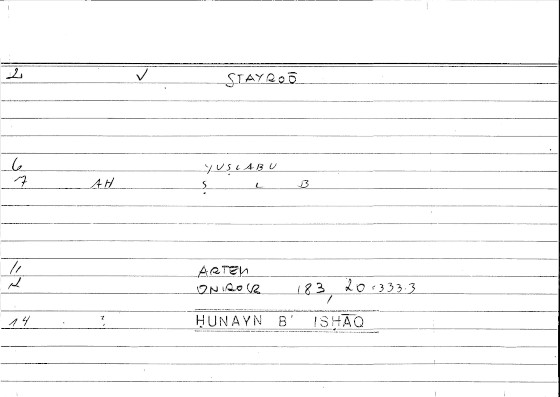 2 √ STAYROŌ
6 YUṢLABU
7 AH Ṣ L B
11 ARTEM
12 ONIROCR 183, 20:333.3
14 ? ḤUNAYN B' ISḤĀQ